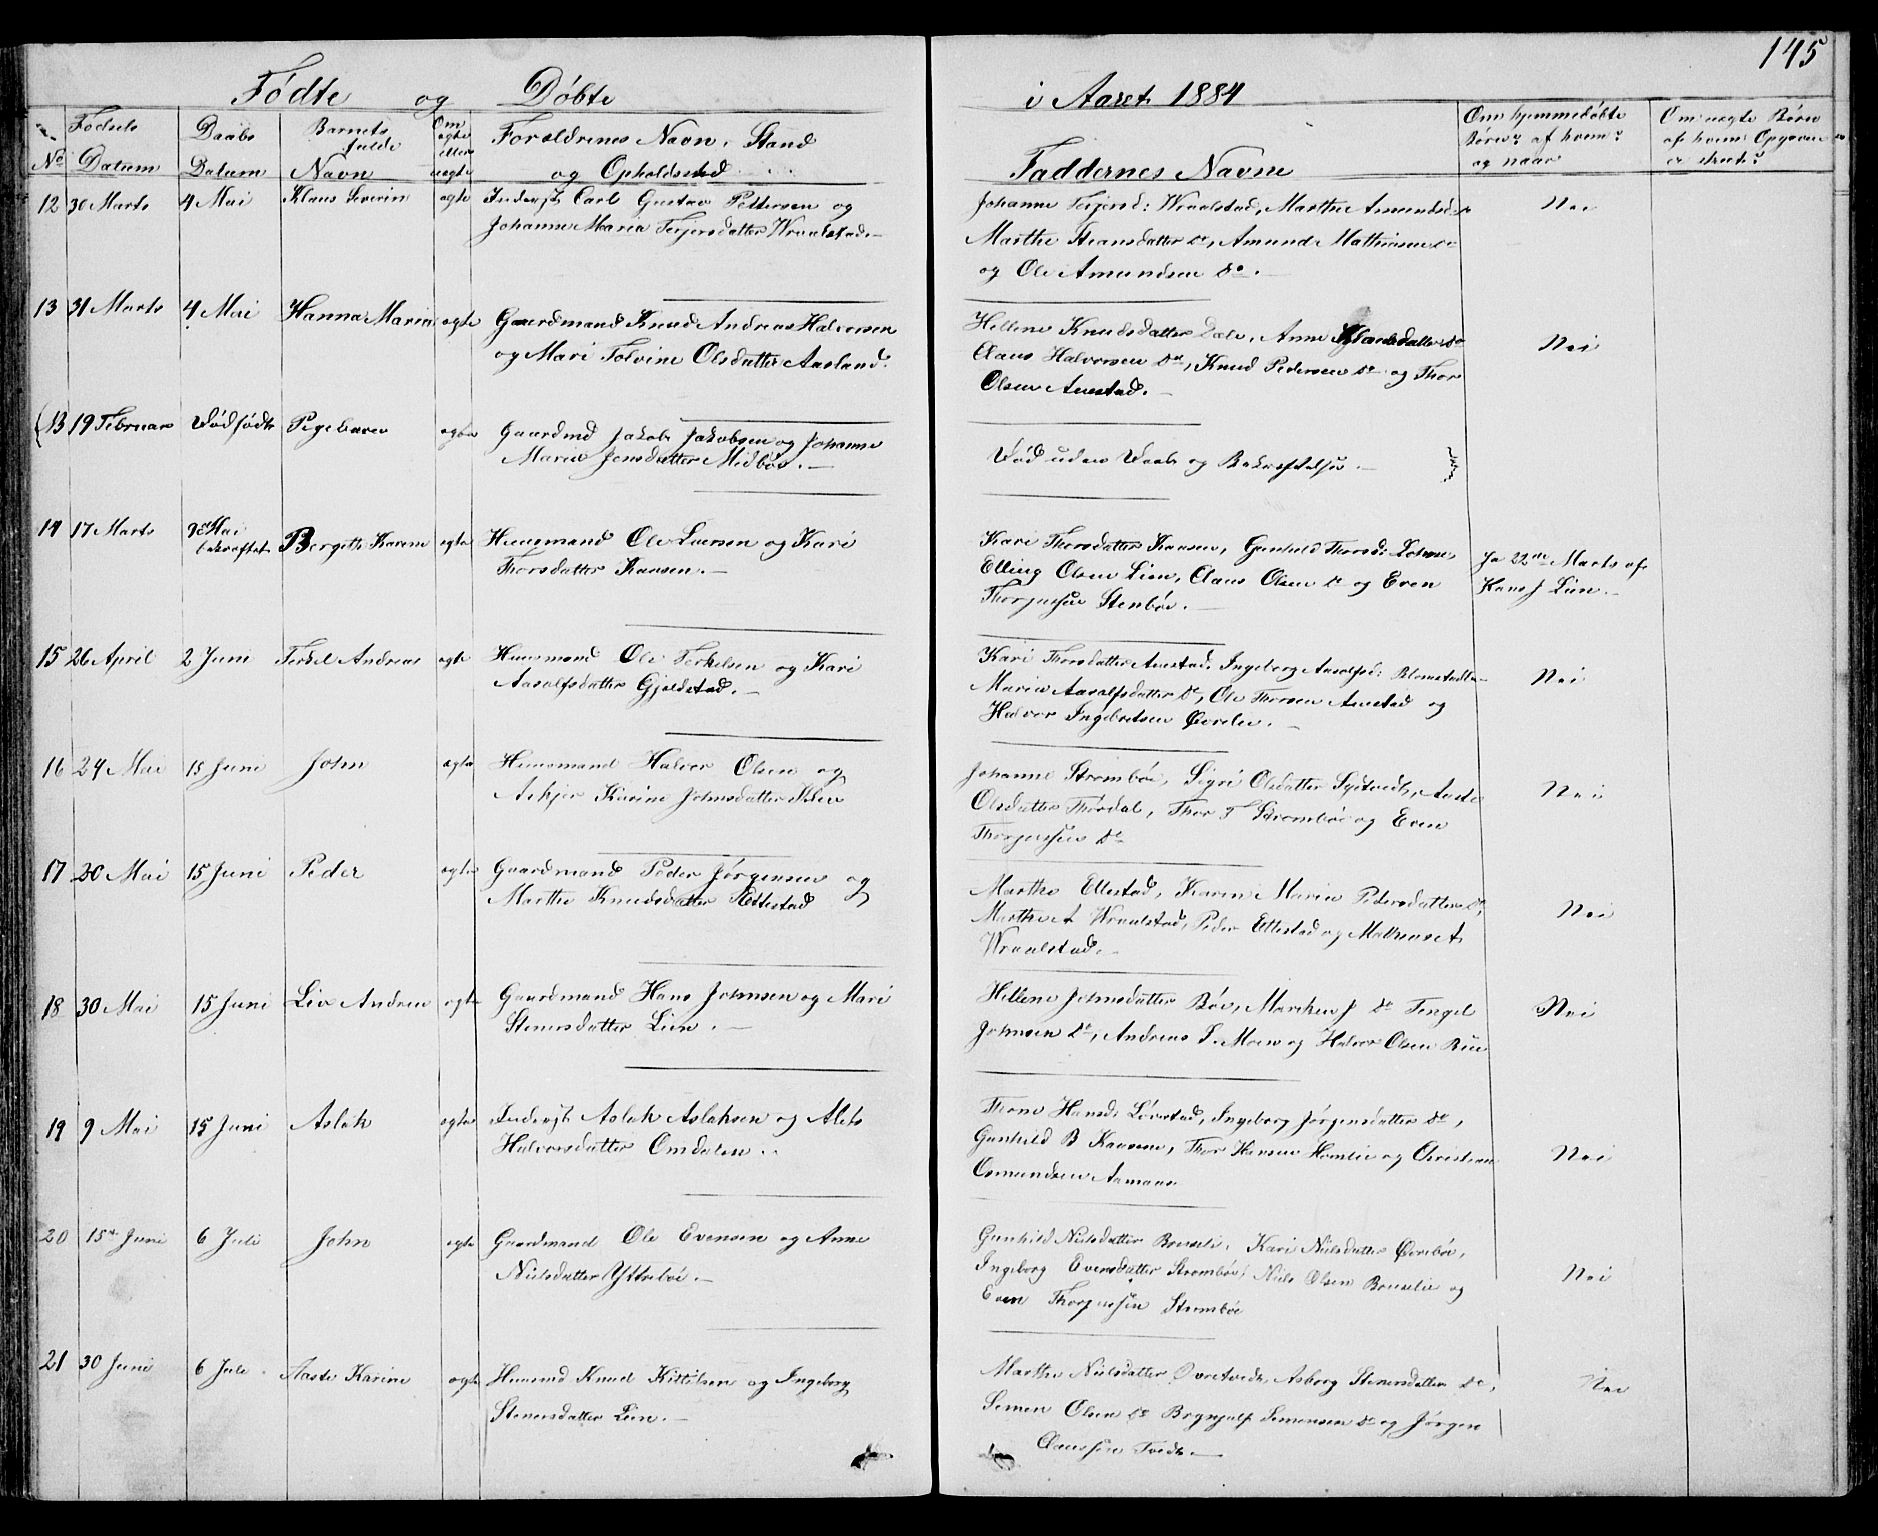 145
Fødte og Døbte
i Aaret 1884
No
Fødsels Datum
Daabs Datum
Barnets fulde Navn
Om ægte eller uægte
Forældrenes Navn, Stand
og Opholdssted
Faddernes Navne
Om hjemmedøbte
Børn? af hvem?
og naar
Om uægte Børn
af hvem Opgaven
er skeet?
12 30 Marts 4 Mai Klaus Severin ægte Inderst Carl Gustav Pettersen og
Johanne Maria Terjersdatter Wraalstad.
Johanne Terjersd: Wraalstad, Marthe Amundsd:
Marthe Steansdatter do, Amund Mathisen do
og Ole Amundsen do.
Nei
13 31 Marts 4 Mai Hanna Maria ægte Gaardmand Knud Andreas Halvorsen
og Mari Tolvine Olsdatter Aasland.
Hellene Knudsdatter Dale, Anne Klausdatter do
Claus Halvorsen do, Knud Pedersen do og Thor
Olsen Auestad.
Nei
(13 19 Februar Dødfødt Pigebarn ægte Gaardmd Jakob Jakobsen og Johanne
Maria Jensdatter Midbøe.
Død uden Daab og Bekræftelse.
14 17 Marts 4 Mai bekræftet Bergith Karine ægte Huusmand Ole Larsen og Kari
Thorsdatter Kaasen.
Kari Thorsdatter Kaasen, Gunhild Thorsd:
Elling Olsen Lien, Claus Olsen do og Even
Thorjussen Stenbøe.
Ja 22de Marts af
Hans J Lien.
15 26 April 2 Juni Terkel Andreas ægte Huusmand Ole Terkelsen og Kari
Aasolfsdatter Gjeldstad.
Kari Thorsdatter Auestad, Ingeborg Aasolfsd:
Maria Aasolfsdatter do, Ole Thorsen Auestad og
Halvor Ingebretsen Øverlie.
Nei
16 24 Mai 15 Juni John ægte Huusmand Halvor Olsen og
Askjer Karine Johnsdatter
Johanne Strombøe, Sigri Olsdatter Sydtvedt, Aaste
Olsdatter Thordal, Thor T Strombøe og Even
Thorjussen do
Nei
17 20 Mai 15 Juni Peder ægte Gaardmand Peder Jørgensen og
Marthe Knudsdatter Ettestad
Marthe Ettestad, Karen Marie Pedersdatter do,
Marthe A Wraalstad, Peder Ettestad og Mathias A
Wraalstad.
Nei
18 30 Mai 15 Juni Liv Andrea ægte Gaardmand Hans Johnsen og Mari
Stenersdatter Lien.
Hellene Johnsdatter Bøe, Maren J do Tengel
Johnsen do, Andreas T. Moen og Halvor Olsen Bøe
Nei
19 9 Mai 15 Juni Aslak ægte Inderst Aslak Aslaksen og Alets
Halvorsdatter Omdalen.
Trone Hansd: Løvstad, Ingeborg Jørgensdatter do,
Gunhild B Kaasene, Thor Hansen Homlie og Christian
Osmundsen Aamaas
Nei
20 15de Juni 6 Juli John ægte Gaardmand Ole Evensen og Anne
Nielsdatter Yttebøe.
Gunhild Nielsdatter Brusli, Kari Nielsdatter Øvrebøe,
Ingeborg Evensdatter Strombøe, Niels Olsen Bruslie og
Even Thorjussen Strombøe
Nei
21 30 Juni 6 Juli Aaste Karine ægte Huusmd Knud Kittilsen og Ingeborg
Stenersdatter Lien.
Marthe Nielsdatter Øvretvedt, Asborg Stenersdatter do,
Semen Olsen do Brynjulf Semensen do og Jørgen
Claussen Tvedt.
Nei